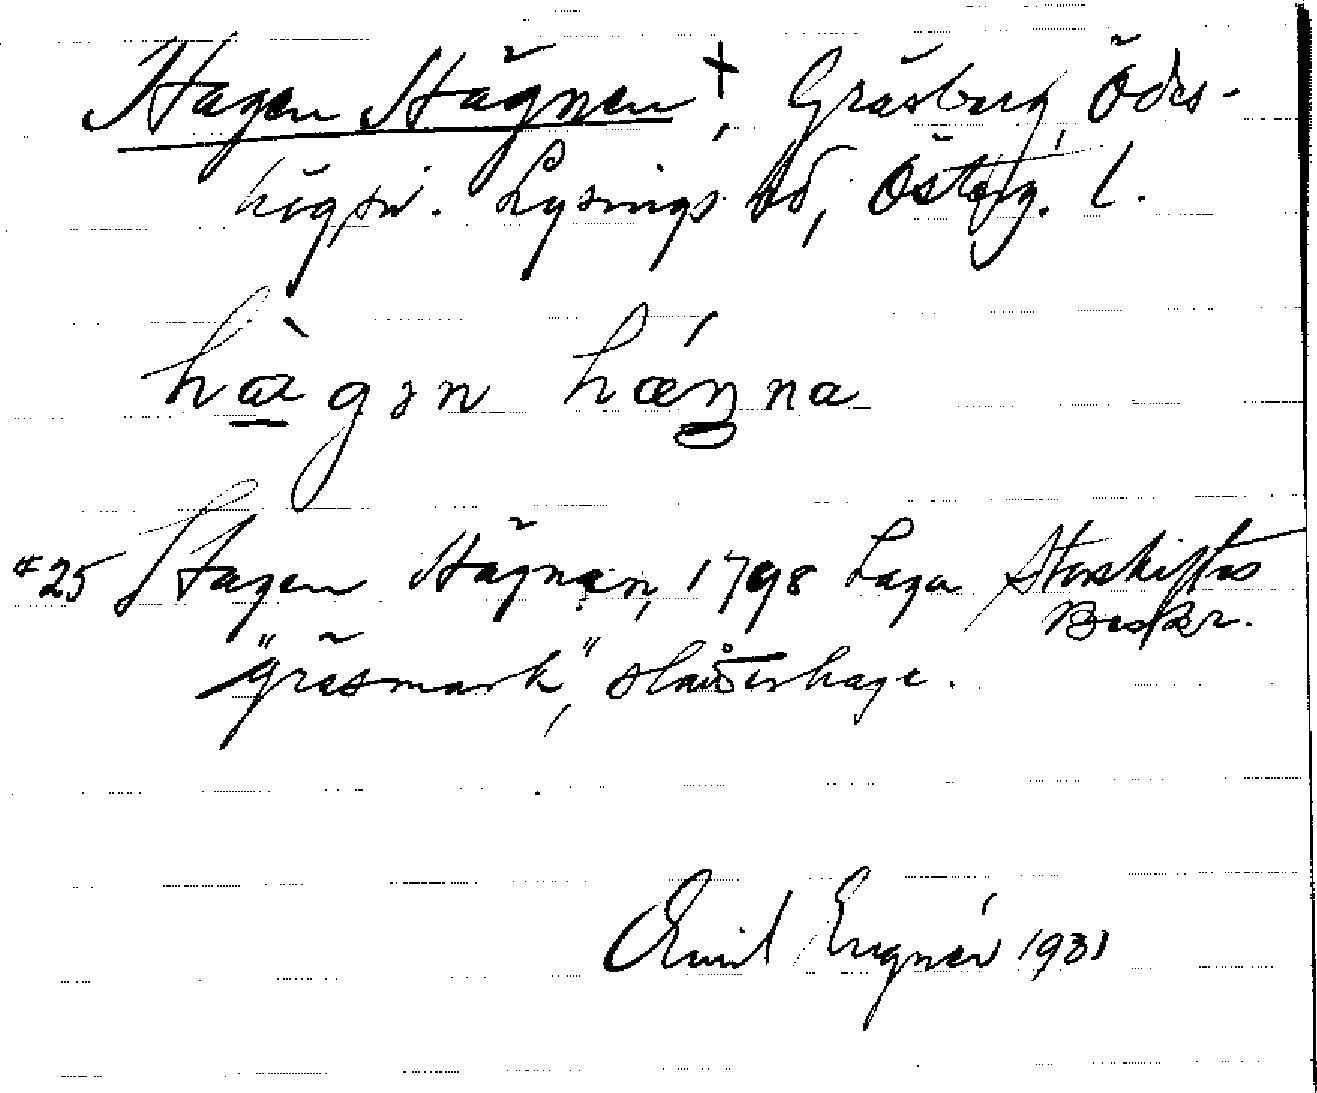 Hagen Hägnen †, Gräsberg, Ödes-
högs sn. Lysings hd, Österg. l.
hàgən hǽŋna
#25 Hagen Hägnan, 1798 Laga Storskiftes
Beskr.
"gräsmark", slåtterhage.
Emil Engnér 1931